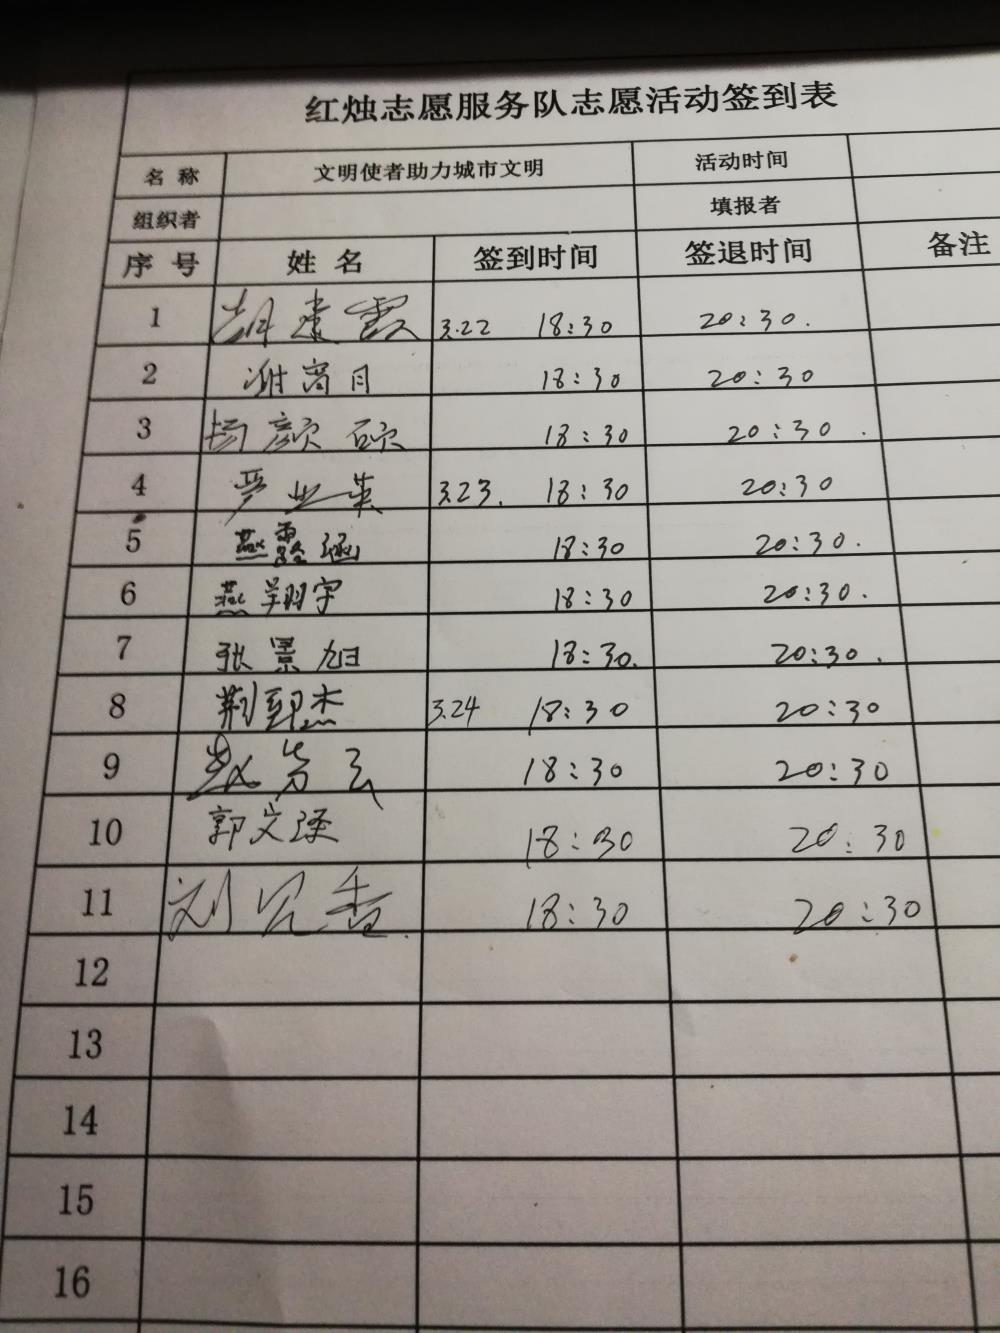 红烛志愿服务队志愿活动签到表
名 称 文明使者助力城市文明 活动时间
组织者 填报者
序 号 姓 名 签到时间 签退时间 备注
1 胡建霞 3.22 18:30 20:30.
2 谢商月 18:30 20:30
3 杨颜硕 18:30 20:30.
4 罗业英 3.23. 18:30 20:30
5 燕露涵 18:30 20:30.
6 燕翔宇 18:30 20:30.
7 张景旭 18:30. 20:30.
8 荆郢杰 3.24 18:30 20:30
9 赵 18:30 20:30
10 郭文泽 18:30 20:30
11 刘 香. 18:30 20:30
12
13
14
15
16